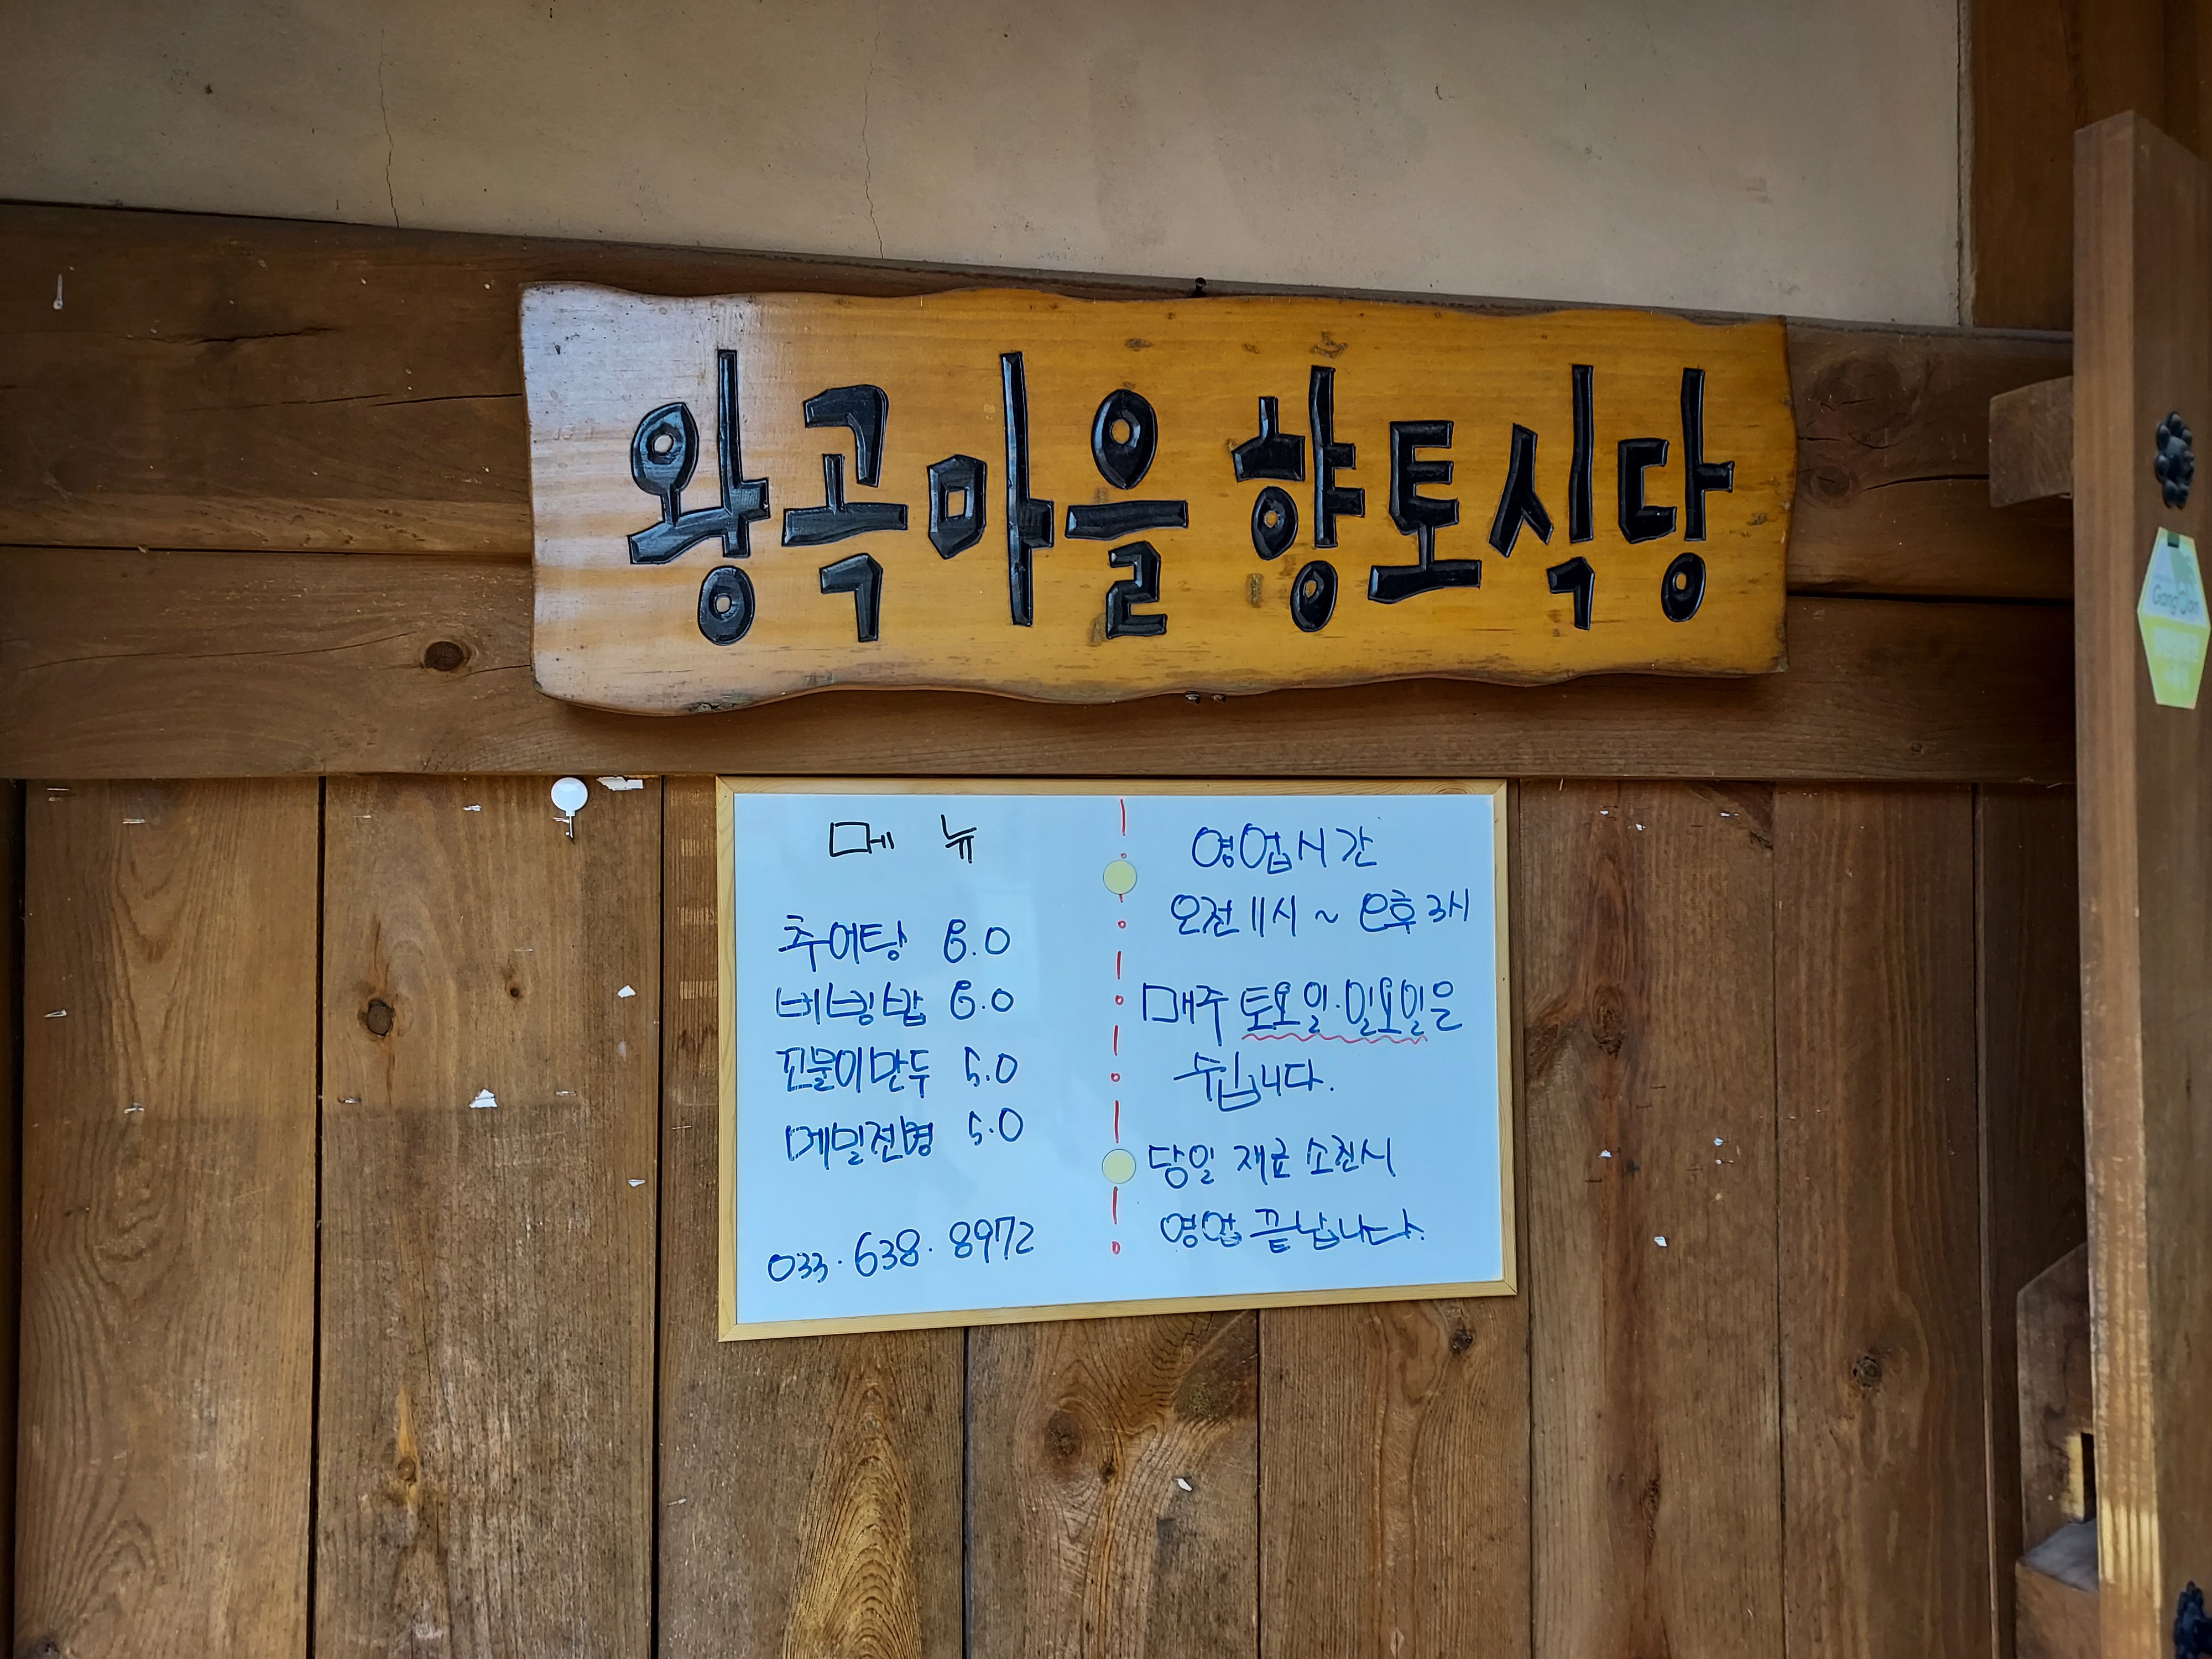 왕곡마을 향토식당
메 뉴
추어탕 8.0
비빔밥 8.0
꼬물이만두 5.0
메밀전병 5.0
033·638·8972
영업시간
오전 11시 ~ 오후 3시
매주 토요일·일요일은
쉽니다.
당일 재료 소진시
영업 끝납니다.